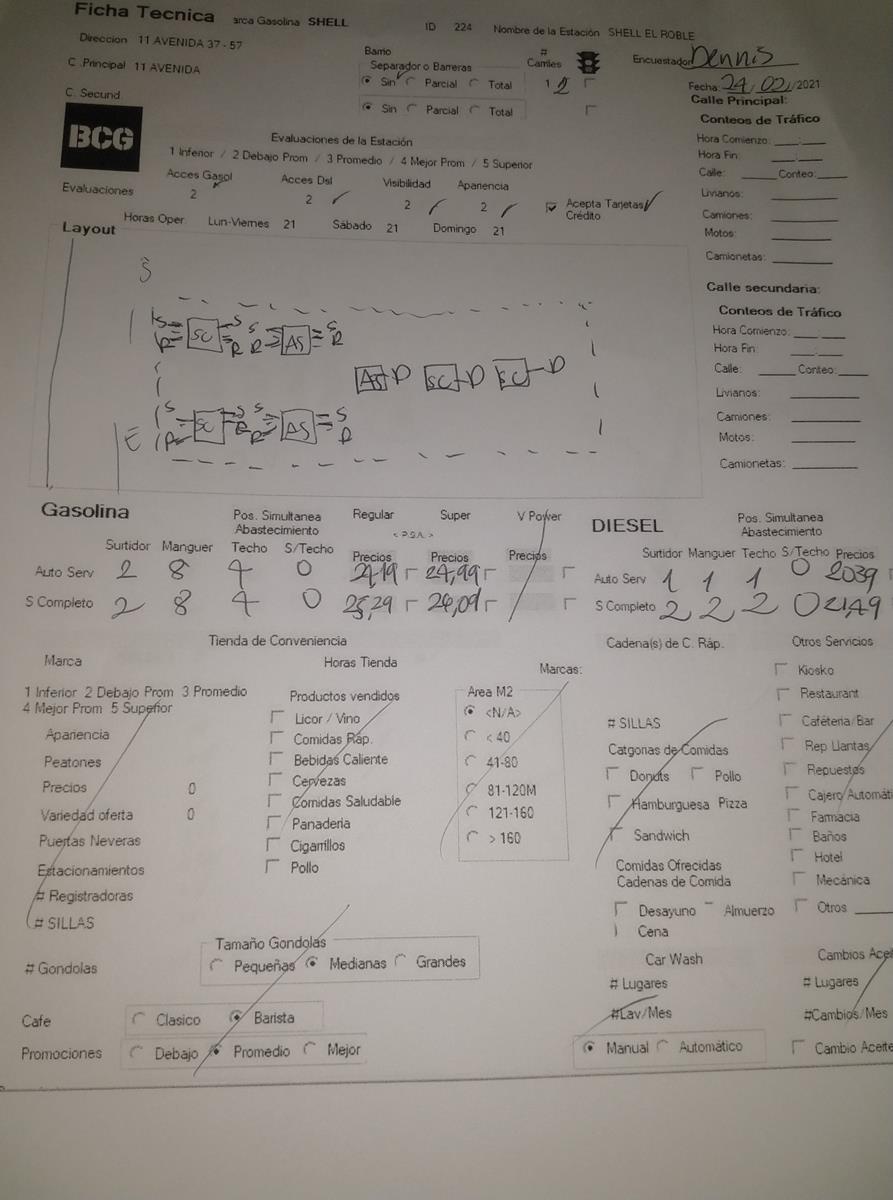 Ficha Tecnica arca Gasolina SHELL ID 224 Nombre de la Estación SHELL EL ROBLE
Direccion 11 AVENIDA 37 - 57
Barrio
Separador o Barreras # Carriles Encuestador Dennis
C .Principal 11 AVENIDA Sin Parcial Total 1 2 Fecha: 24/02/2021
C. Secund. Sin Parcial Total
Calle Principal:
BCG
Conteos de Tráfico
Evaluaciones de la Estación
Hora Comienzo: __:__
1 Inferior / 2 Debajo Prom / 3 Promedio / 4 Mejor Prom / 5 Superior
Hora Fin: __:__
Acces Gasol Acces Dsl Visibilidad Apariencia
Calle: ____ Conteo: ____
Evaluaciones 2 2 2 2 Acepta Tarjetas Crédito
Livianos:
Camiones:
Horas Oper Lun-Viernes 21 Sábado 21 Domingo 21
Motos:
Camionetas:
Layout
S
Calle secundaria:
Conteos de Tráfico
S SC S S AS S
R R R R
Hora Comienzo: __:__
Hora Fin: __:__
AS D SC D SC D
Calle: ____ Conteo: ____
Livianos:
S SC S S AS S
E R R R R
Camiones:
Motos:
Camionetas:
Gasolina Pos. Simultanea Abastecimiento Regular Super V Power DIESEL Pos. Simultanea Abastecimiento
< P.S.A. >
Surtidor Manguer Techo S/Techo Precios Precios Precios Surtidor Manguer Techo S/Techo Precios
Auto Serv 2 8 4 0 24,19 24,99 Auto Serv 1 1 1 0 2039
S Completo 2 8 4 0 25,29 26,09 S Completo 2 2 2 0 21,49
Tienda de Conveniencia Cadena(s) de C. Ráp. Otros Servicios
Marca Horas Tienda Marcas: Kiosko
1 Inferior 2 Debajo Prom 3 Promedio Productos vendidos Area M2 Restaurant
4 Mejor Prom 5 Superior Licor / Vino <N/A> # SILLAS Caféteria/Bar
Apariencia Comidas Ráp. < 40 Catgorias de Comidas Rep Llantas
Peatones Bebidas Caliente 41-80 Donuts Pollo Repuestos
Precios 0 Cervezas 81-120M Hamburguesa Pizza Cajero Automáti
Variedad oferta 0 Comidas Saludable 121-160 Farmacia
Puertas Neveras Panaderia > 160 Sandwich Baños
Estacionamientos Cigarrillos Comidas Ofrecidas Hotel
# Registradoras Pollo Cadenas de Comida Mecánica
# SILLAS Desayuno Almuerzo Otros
Cena
Tamaño Gondolas Car Wash Cambios Aceit
# Gondolas Pequeñas Medianas Grandes # Lugares # Lugares
Cafe Clasico Barista #Lav/Mes #Cambios/Mes
Promociones Debajo Promedio Mejor Manual Automático Cambio Aceite